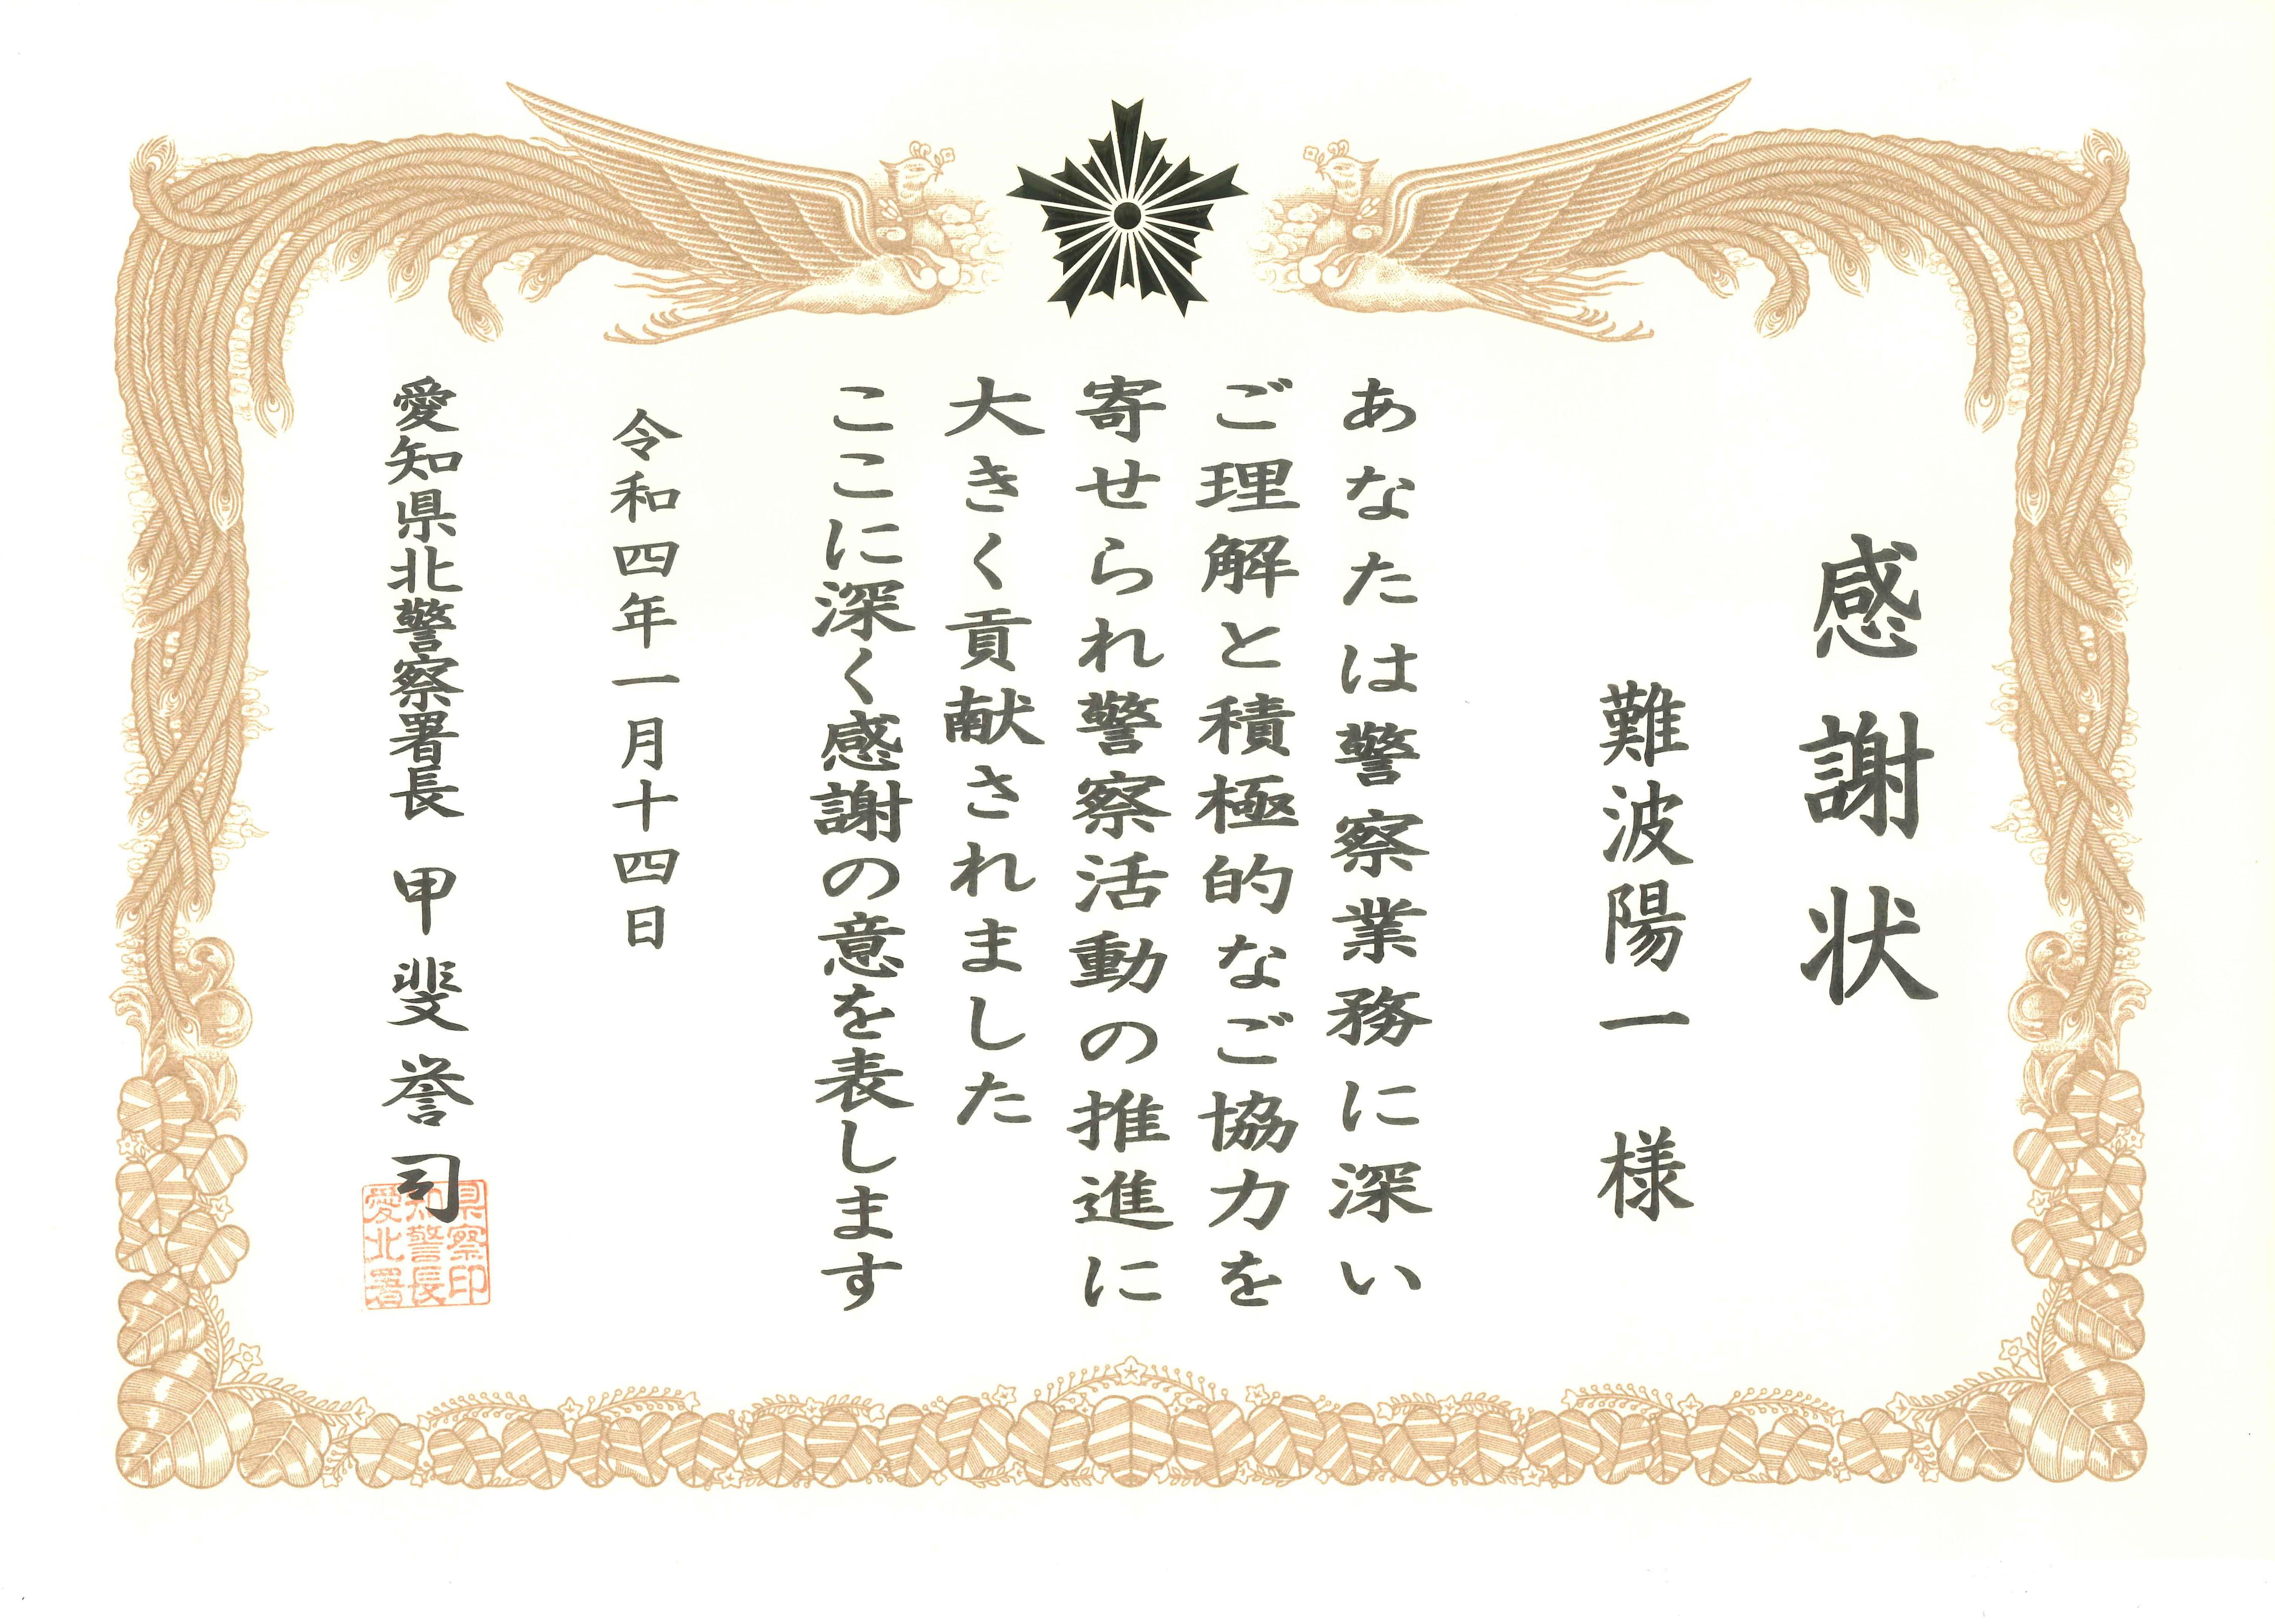 感謝状
難波陽一 様
あなたは警察業務に深い
ご理解と積極的なご協力を
寄せられ警察活動の推進に
大きく貢献されました
ここに深く感謝の意を表します
令和四年一月十四日
愛知県北警察署長 甲斐誉司
愛知県北警察署長印